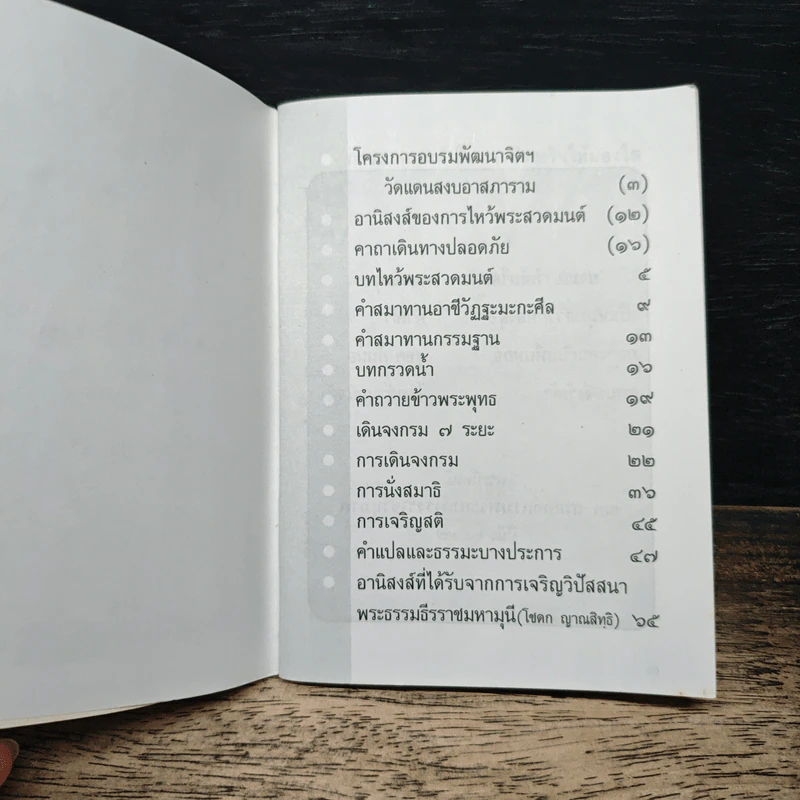 โครงการอบรมพัฒนาจิตฯ
วัดแดนสงบอาสภาราม (๓)
อานิสงส์ของการไหว้พระสวดมนต์ (๑๒)
คาถาเดินทางปลอดภัย (๑๖)
บทไหว้พระสวดมนต์ ๕
คำสมาทานอาชีวัฏฐะมะกะศีล ๙
คำสมาทานกรรมฐาน ๑๓
บทกรวดน้ำ ๑๖
คำถวายข้าวพระพุทธ ๑๙
เดินจงกรม ๗ ระยะ ๒๑
การเดินจงกรม ๒๒
การนั่งสมาธิ ๓๖
การเจริญสติ ๔๕
คำแปลและธรรมะบางประการ ๔๗
อานิสงส์ที่ได้รับจากการเจริญวิปัสสนา
พระธรรมธีรราชมหามุนี (โชดก ญาณสิทฺธิ) ๖๕